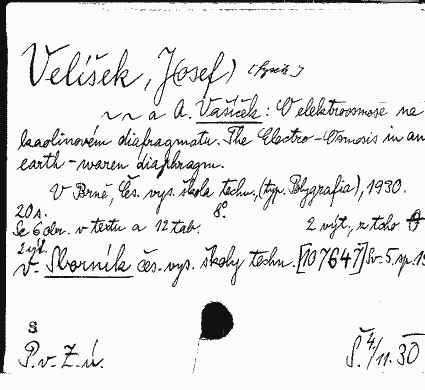 Velíšek, J(osef)
~ ~ a A. Vašíček: O elektroosmose na
kaolinovém diafragmatu. The Electro-Osmosis in an
earth-waren diaphragm.
V Brně, Čes. vys. škola techn., (typ. Polygrafia), 1930.
20 s. 8º.
Se 6 obr. v textu a 12 tab. 2 výt., z toho
2 výt.
v. Sborník čes. vys. školy techn. [107647] Sv. 5. sp. 19
S
P. v. Z. ú. Š. 4/11. 30